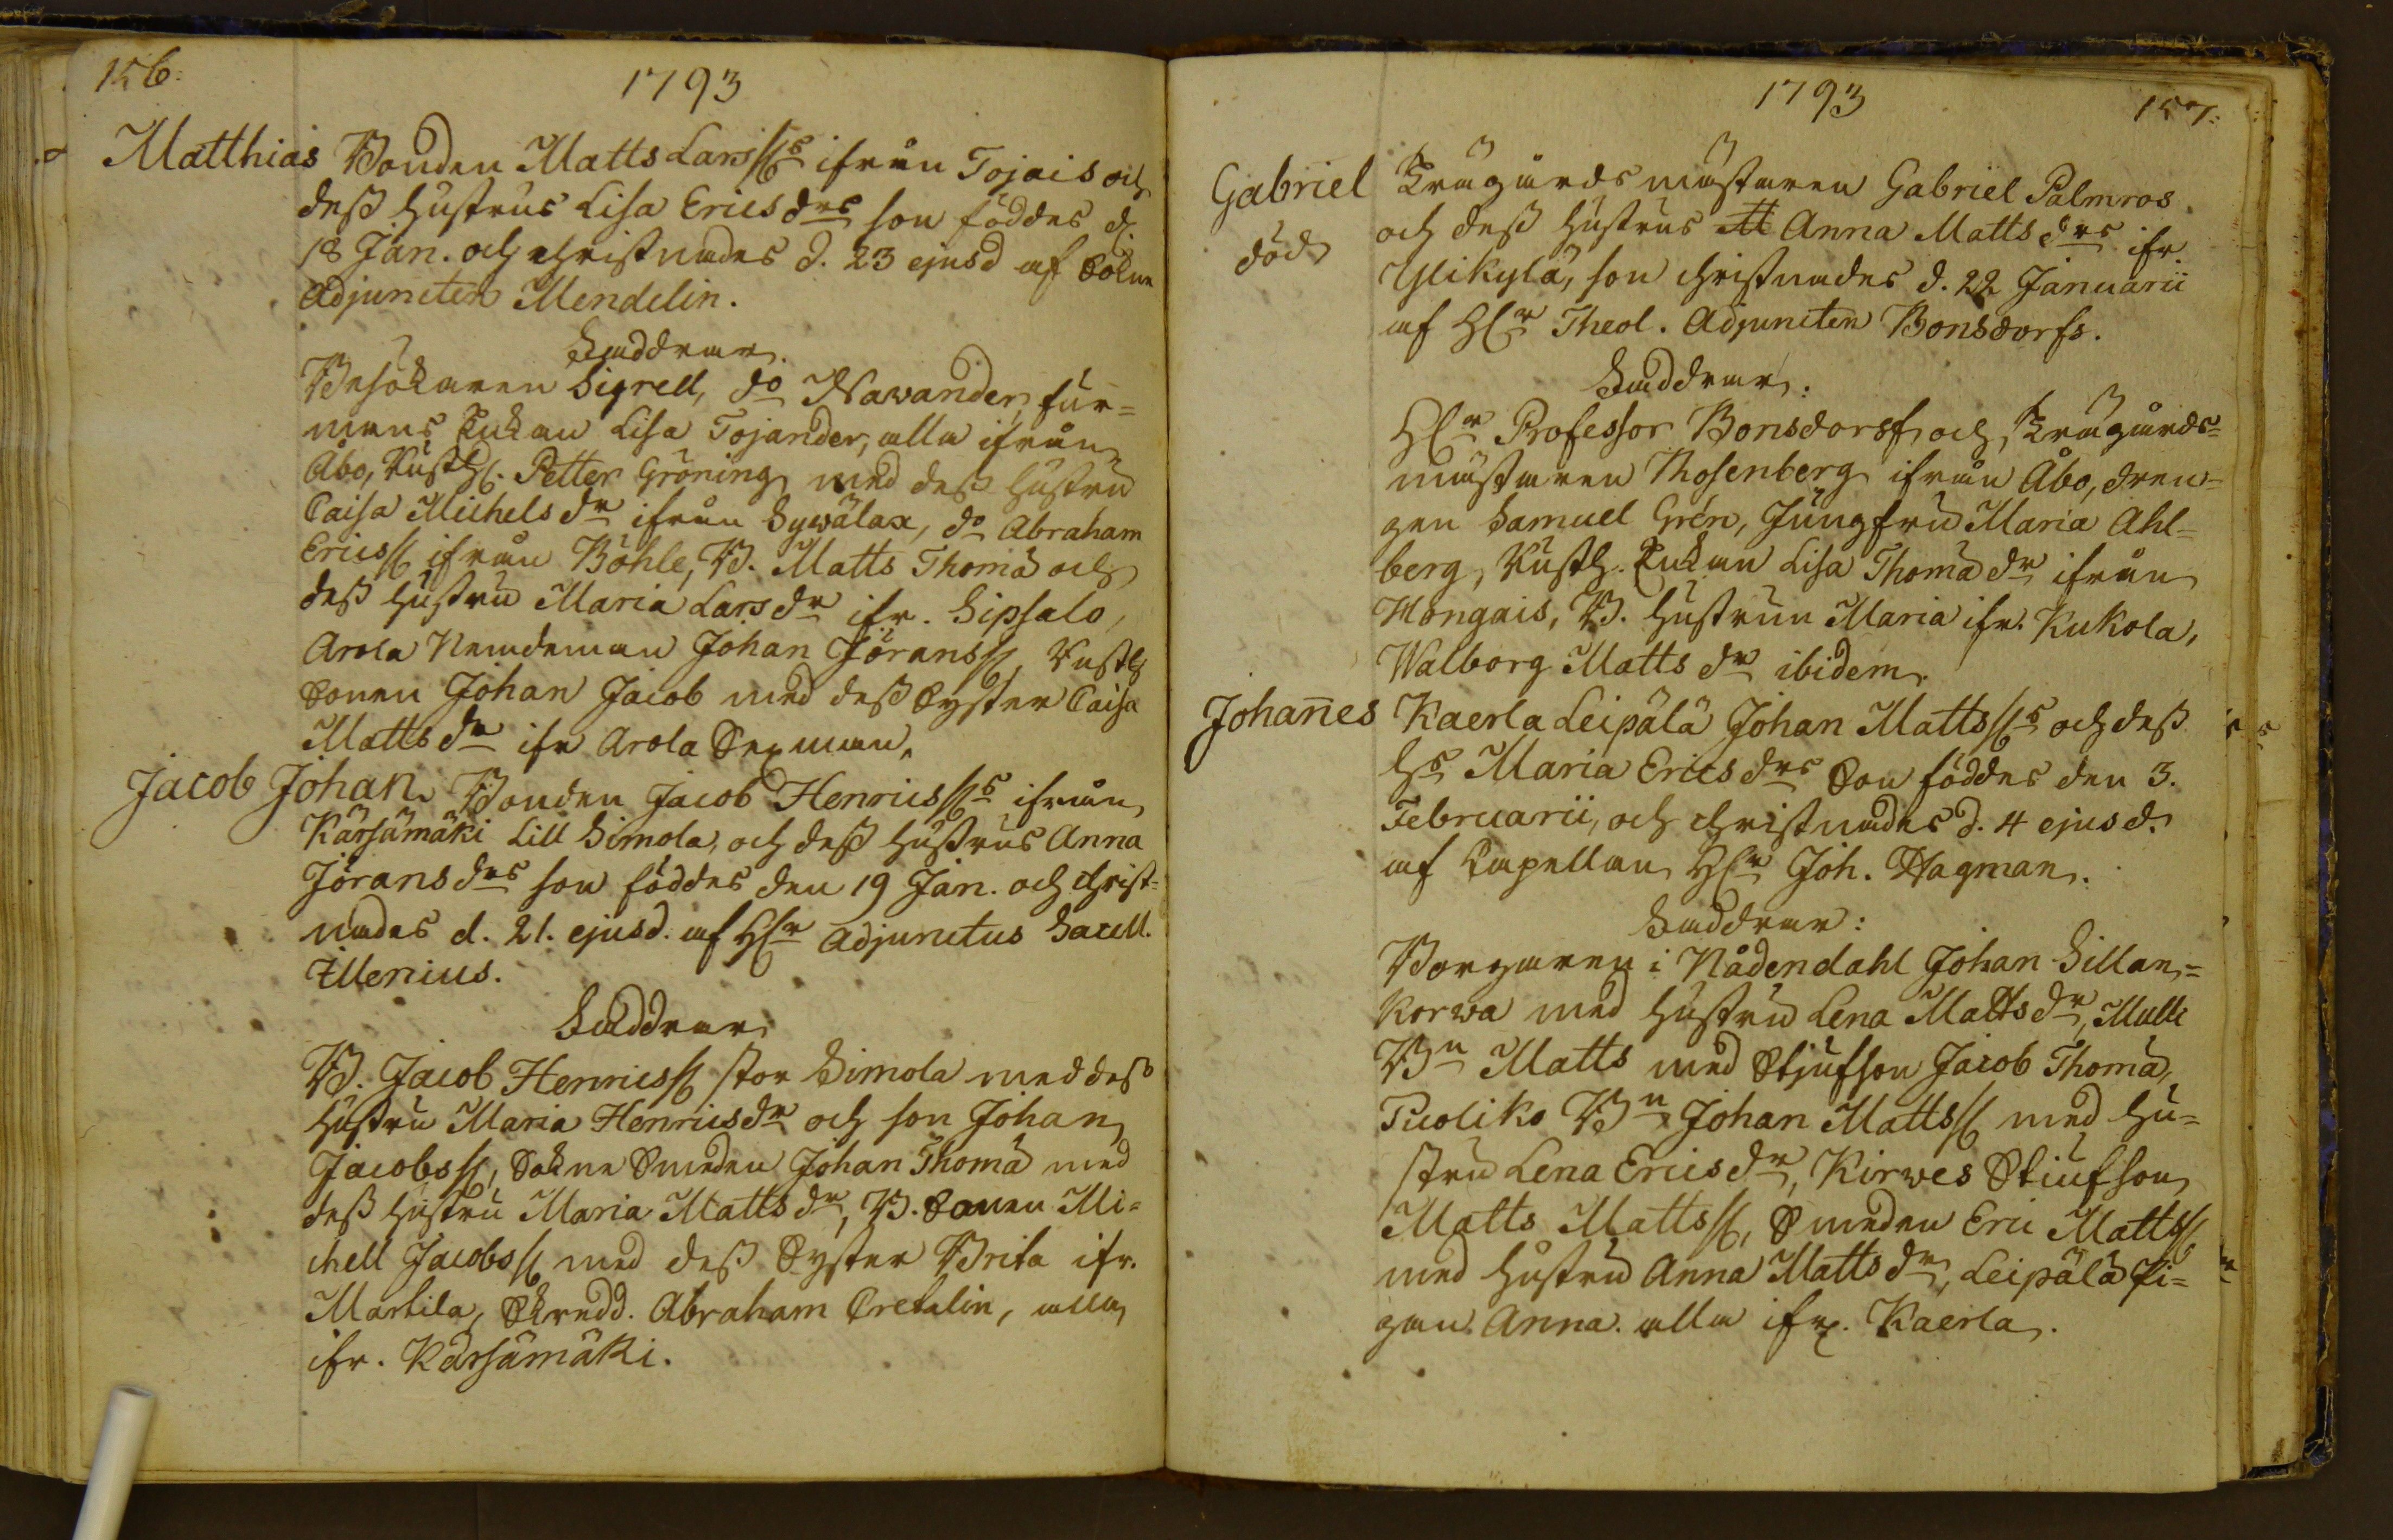 156.
1793
Matthias Bonden Matts Larsss ifrån Tojais och
dess hustrus Lisa Ericsdrs son föddes d.
18 Jan. och christnades d. 23 ejusd af Sokne
Adjuncten Mendelin.
Faddrar.
Besökaren Sigrell, do Navander, fur=
mans Enkan Lisa Tojander, alla ifrån
Åbo, Rusth. Petter Gröning med dess hustru
Caisa Michels dr ifrån Sywälax, do Abraham
Ericss ifrån Böhle, B. Matts Thomä och
dess hustru Maria Lars dr ifr. Sipsalo,
Arola Nemdeman Johan Jöranss, Rusth
Sonen Johan Jacob med dess Syster Caisa
Matts dr ifr Arola Sexman.
Jacob Johan. Bonden Jacob Henricsss ifrån
Kärsämäki Lill Simola, och dess hustrus Anna
Jörans drs son föddes den 19 Jan. och christ=
nades d. 21. ejusd. af Hr Adjunctus Sacell.
Illenius.
Faddrar
B. Jacob Henricss stor Simola med dess
hustru Maria Henricsdr och son Johan
Jacobss, Sokne Smeden Johan Thomä med
dess hustru Maria Matts dr, B. Sonen Mi=
chell Jacobss med dess Syster Brita ifr.
Martila, Skredd. Abraham Cretalin, alla
ifr. Kärsämäki.
1793
157.
Gabriel Trägårdsmästaren Gabriel Palmros
död och dess hustrus Anna Matts drs ifr.
Ylikylä, son christnades d. 22 Januarii
af Hr Theol. Adjuncten Bonsdorfs.
Faddrar:
Hr Professor Bonsdorff och Trägårds=
mästaren Thosenberg ifrån Åbo, dren=
gen Samuel Grén, Jungfru Maria Ahl=
berg, Rusth. Enkan Lisa Thomä dr ifrån
Hongais, B. hustrun Maria ifr. Kukola,
Walborg Matts dr ibidem.
Johan̄es Kaerla Leipälä Johan Mattsss och dess
hs Maria Erics drs Son föddes den 3.
Februarii, och christnades d. 4 ejusd.
af Capellan Hr Joh. Hagman.
Faddrar:
Borgaren i Nådendahl Johan Sillan=
korwa med hustru Lena Matts dr, Mulli
Bn Matts med Stjufson Jacob Thomä,
Puoliko Bn Johan Mattss med hu=
stru Lena Erics dr, Kirves Stiufson
Matts Mattss, Smeden Eric Mattss
med hustru Anna Matts dr, Leipälä Pi=
gan Anna. alla ifr. Kaerla.